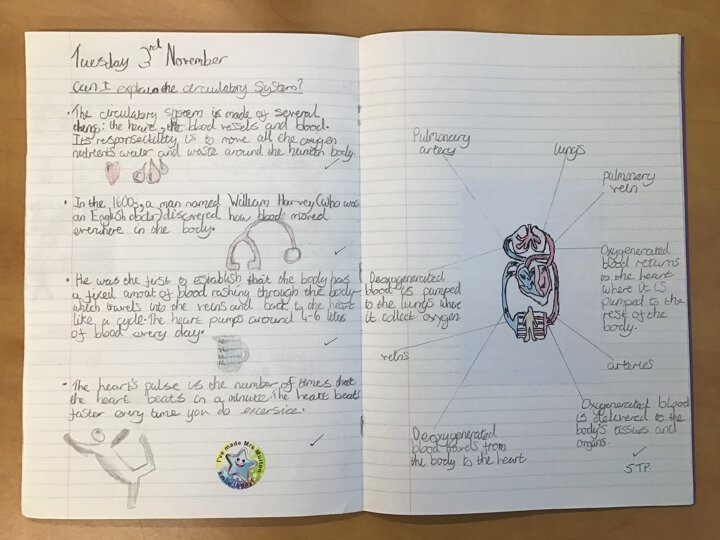 Tuesday 3rd November
Can I explain the circulatory system?
• The circulatory system is made of several
things: the heart, the blood vessels and blood.
Its responsibility is to move all the oxygen
nutrients water and waste around the human body.
• In the 1600s, a man named William Harvey (who was
an English doctor) discovered how blood moved
everwhere in the body.
• He was the first to establish that the body has
a fixed amout of blood rushing through the body
which travels into the veins and back to the heart
like a cycle. The heart pumps around 4-6 litres
of blood every day.
• The heart's pulse is the number of times that
the heart beats in a minute. The heart beats
faster every time you do excersice.
I've made Mrs
smile today
Pulmonary
artery
lungs
pulmonary
vein
Oxygenerated
blood returns
to the heart
where it is
pumped to the
rest of the
body.
Deoxygenerated
blood is pumped
to the lungs where
it collect oxygen
veins
arteries
Oxygenerated blood
is delivered to the
body's tissues and
organs.
Deoxygenerated
blood travels from
the body to the heart
STP